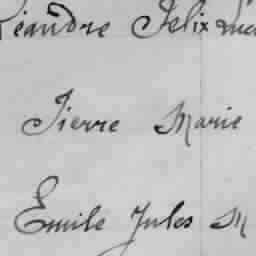 Léandre Félix
Pierre Marie
Emile Jules M